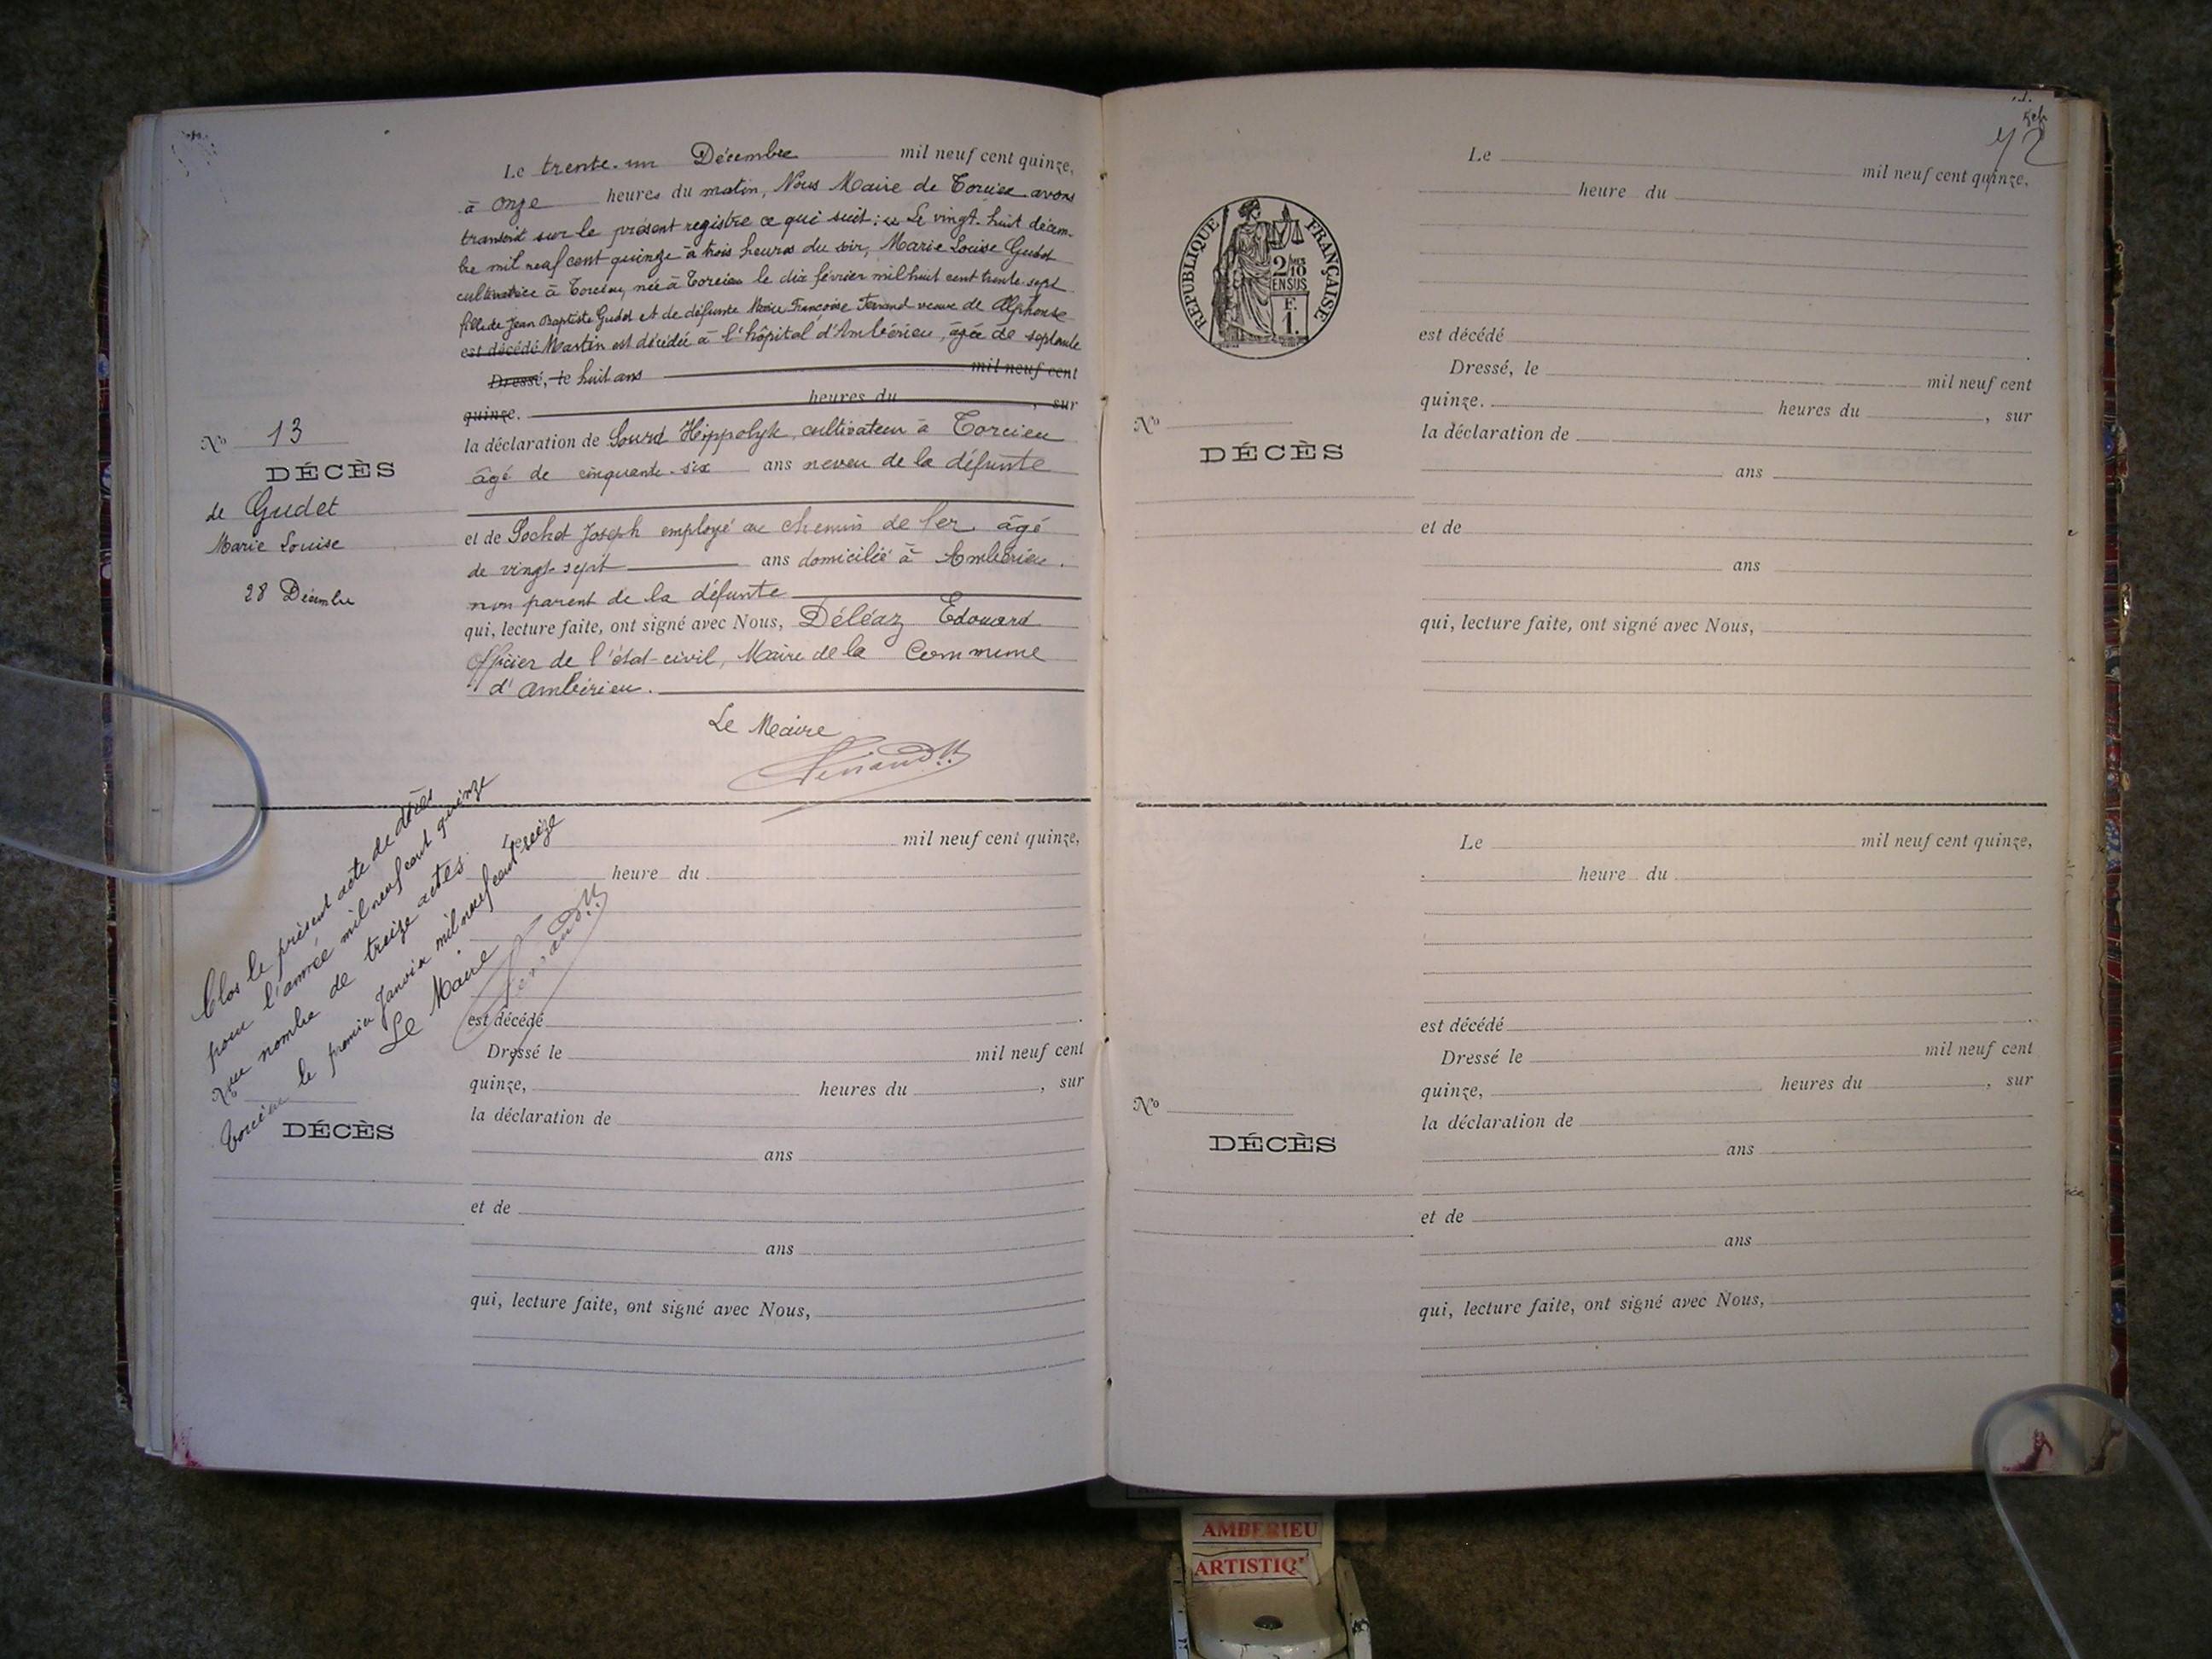 Le trente-un Décembre mil neuf cent quinze,
à onze heures du matin, Nous Maire de Torcieu avons
transcrit sur le présent registre ce qui suit : Le vingt-huit décem-
bre mil neuf cent quinze à trois heures du soir, Marie Louise Gudet
cultivatrice à Torcieu, née à Torcieu le dix février mil huit cent trente-sept
fille de Jean Baptiste Gudet et de défunte Marie Françoise Ferrand veuve de Alphonse
est décédé Martin est décédée à l'hôpital d'Ambérieu, âgée de septante
Dressé, le huit ans mil neuf cent
quinze. heures du , sur
la déclaration de Sourd Hippolyte, cultivateur à Torcieu
âgé de cinquante-six ans neveu de la défunte
et de Pochet Joseph employé au chemin de fer âgé
de vingt-sept ans domicilié à Ambérieu.
non parent de la défunte
qui, lecture faite, ont signé avec Nous, Déléaz Edouard
Officier de l'état-civil, Maire de la Commune
d'Ambérieu.
Le Maire
No 13
DÉCÈS
de Gudet
Marie Louise
28 Décembre
Clos le présent acte de décès
pour l'année mil neuf cent quinze
au nombre de treize actes.
Torcieu le premier Janvier mil neuf cent seize
Le Maire
Le mil neuf cent quinze,
heure du
est décédé
Dressé le mil neuf cent
quinze, heures du , sur
la déclaration de
ans
et de
ans
qui, lecture faite, ont signé avec Nous,
DÉCÈS
72
Le mil neuf cent quinze,
heure du
RÉPUBLIQUE FRANÇAISE
2/10
EN SUS
F.
1.
est décédé
Dressé, le mil neuf cent
quinze. heures du , sur
la déclaration de
ans
et de
ans
qui, lecture faite, ont signé avec Nous,
No
DÉCÈS
Le mil neuf cent quinze,
heure du
est décédé
Dressé le mil neuf cent
quinze, heures du , sur
la déclaration de
ans
et de
ans
qui, lecture faite, ont signé avec Nous,
No
DÉCÈS
AMBERIEU
ARTISTIQ